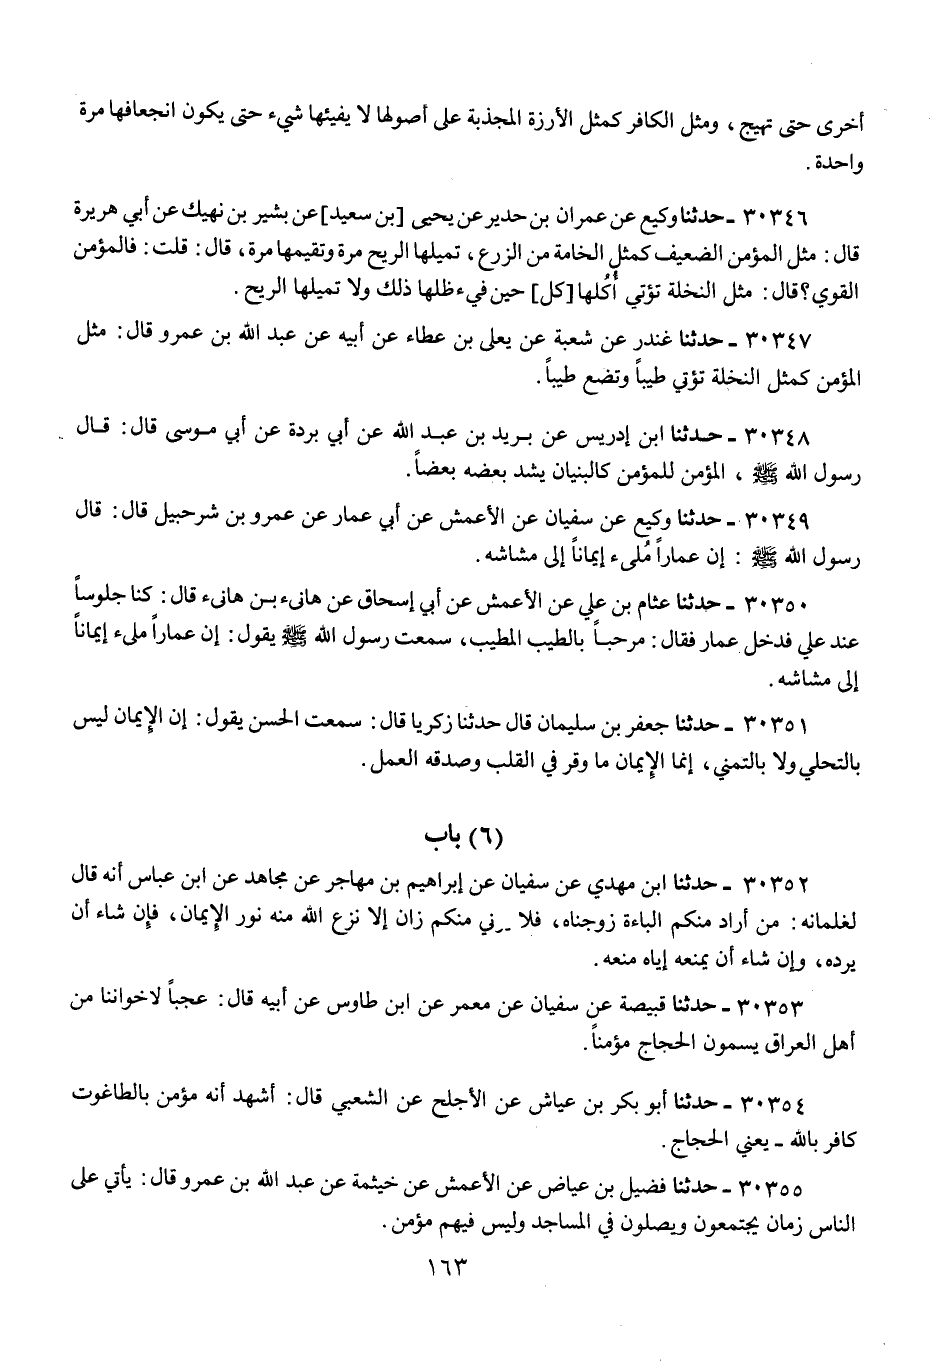 أخرى حتى تهيج، ومثل الكافر كمثل الأرزة المجذبة على أصولها لا يفيئها شيء حتى يكون انجعافها مرة
واحدة.
٣٠٣٤٦ ـ حدثنا وكيع عن عمران بن حدير عن يحيى [بن سعيد] عن بشير بن نهيك عن أبي هريرة
قال: مثل المؤمن الضعيف كمثل الخامة من الزرع، تميلها الريح مرة وتقيمها مرة، قال: قلت: فالمؤمن
القوي؟ قال: مثل النخلة تؤتي أُكُلها [كل] حين في ظلها ذلك ولا تميلها الريح.
٣٠٣٤٧ ـ حدثنا غندر عن شعبة عن يعلى بن عطاء عن أبيه عن عبد الله بن عمرو قال: مثل
المؤمن كمثل النخلة تؤتي طيباً وتضع طيباً.
٣٠٣٤٨ ـ حدثنا ابن إدريس عن بريد بن عبد الله عن أبي بردة عن أبي موسى قال: قال
رسول الله ﷺ ، المؤمن للمؤمن كالبنيان يشد بعضه بعضاً.
٣٠٣٤٩ ـ حدثنا وكيع عن سفيان عن الأعمش عن أبي عمار عن عمرو بن شرحبيل قال: قال
رسول الله ﷺ : إن عماراً مُلىء إيماناً إلى مشاشه.
٣٠٣٥٠ ـ حدثنا عثام بن علي عن الأعمش عن أبي إسحاق عن هانىء بن هانىء قال: كنا جلوساً
عند علي فدخل عمار فقال: مرحباً بالطيب المطيب، سمعت رسول الله ﷺ يقول: إن عماراً ملىء إيماناً
إلى مشاشه.
٣٠٣٥١ ـ حدثنا جعفر بن سليمان قال حدثنا زكريا قال: سمعت الحسن يقول: إن الإيمان ليس
بالتحلي ولا بالتمني، إنما الإيمان ما وقر في القلب وصدقه العمل.
(٦) باب
٣٠٣٥٢ ـ حدثنا ابن مهدي عن سفيان عن إبراهيم بن مهاجر عن مجاهد عن ابن عباس أنه قال
لغلمانه: من أراد منكم الباءة زوجناه، فلا منكم زان إلا نزع الله منه نور الإيمان، فإن شاء أن
يرده، وإن شاء أن يمنعه إياه منعه.
٣٠٣٥٣ ـ حدثنا قبيصة عن سفيان عن معمر عن ابن طاوس عن أبيه قال: عجباً لاخواننا من
أهل العراق يسمون الحجاج مؤمناً.
٣٠٣٥٤ ـ حدثنا أبو بكر بن عياش عن الأجلح عن الشعبي قال: أشهد أنه مؤمن بالطاغوت
كافر بالله ـ يعني الحجاج.
٣٠٣٥٥ ـ حدثنا فضيل بن عياض عن الأعمش عن خيثمة عن عبد الله بن عمرو قال: يأتي على
الناس زمان يجتمعون ويصلون في المساجد وليس فيهم مؤمن.
١٦٣